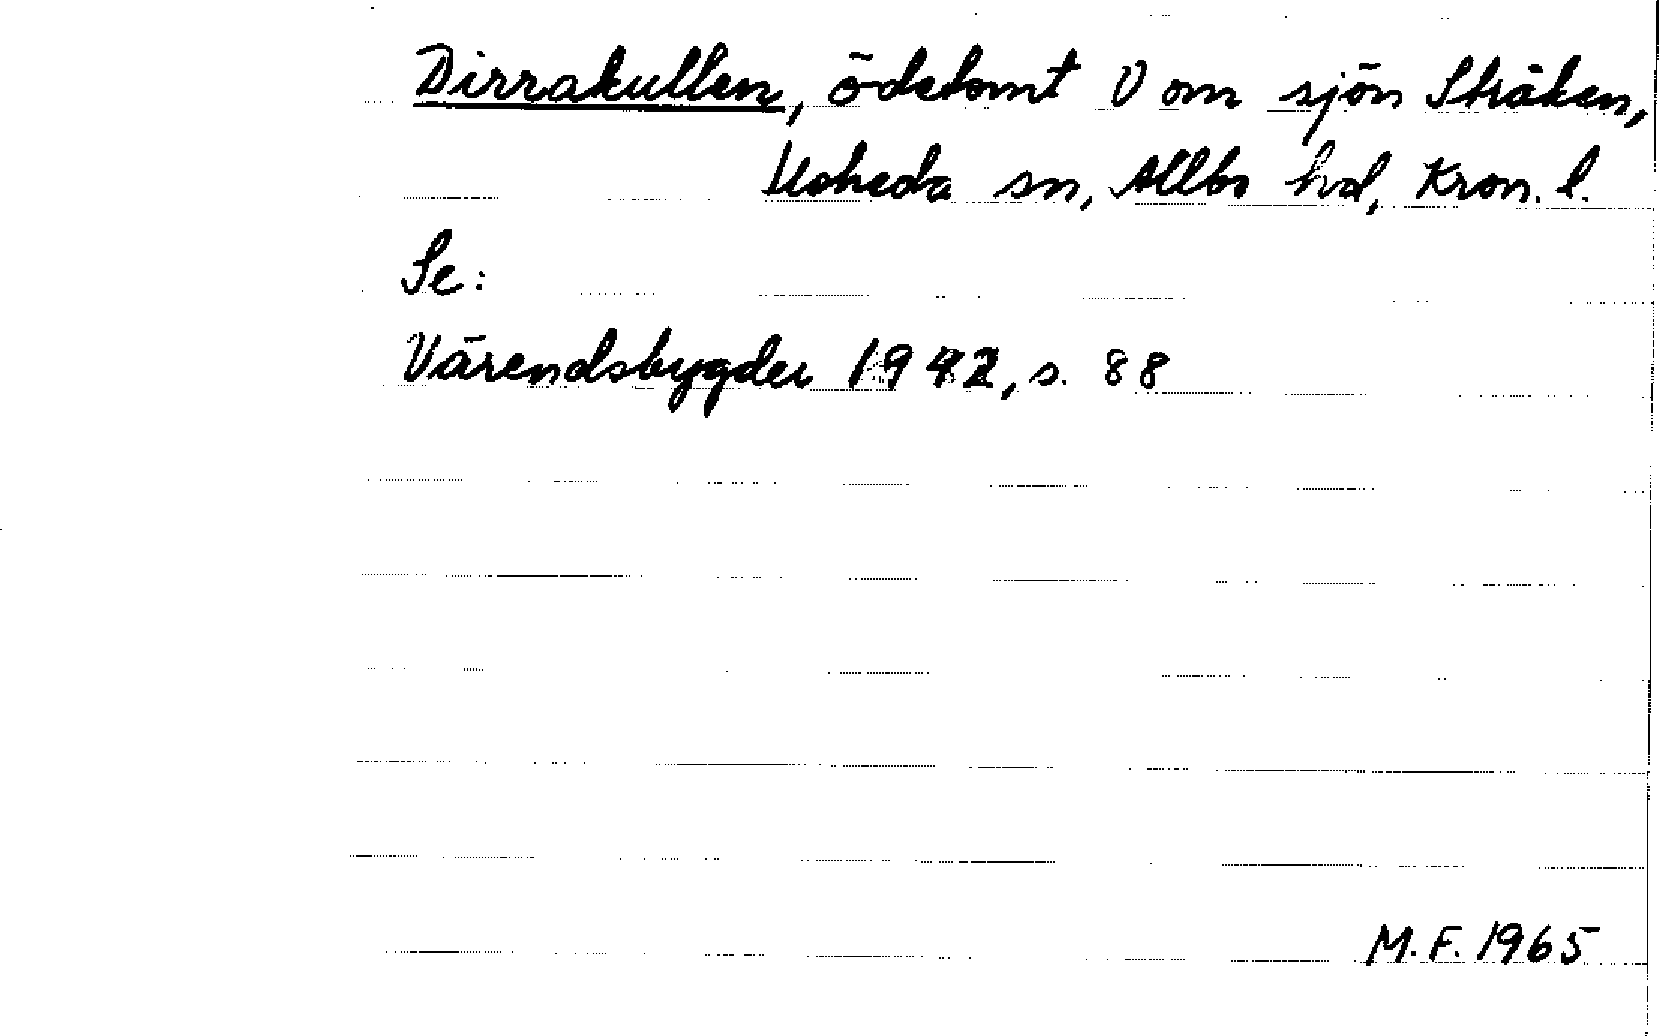 Dirrakullen, ödetomt V om sjön Stråken,
Moheda sn, Allbo hd, Kron. l.
Se:
Värendsbygder 1942, s. 88
M.F. 1965